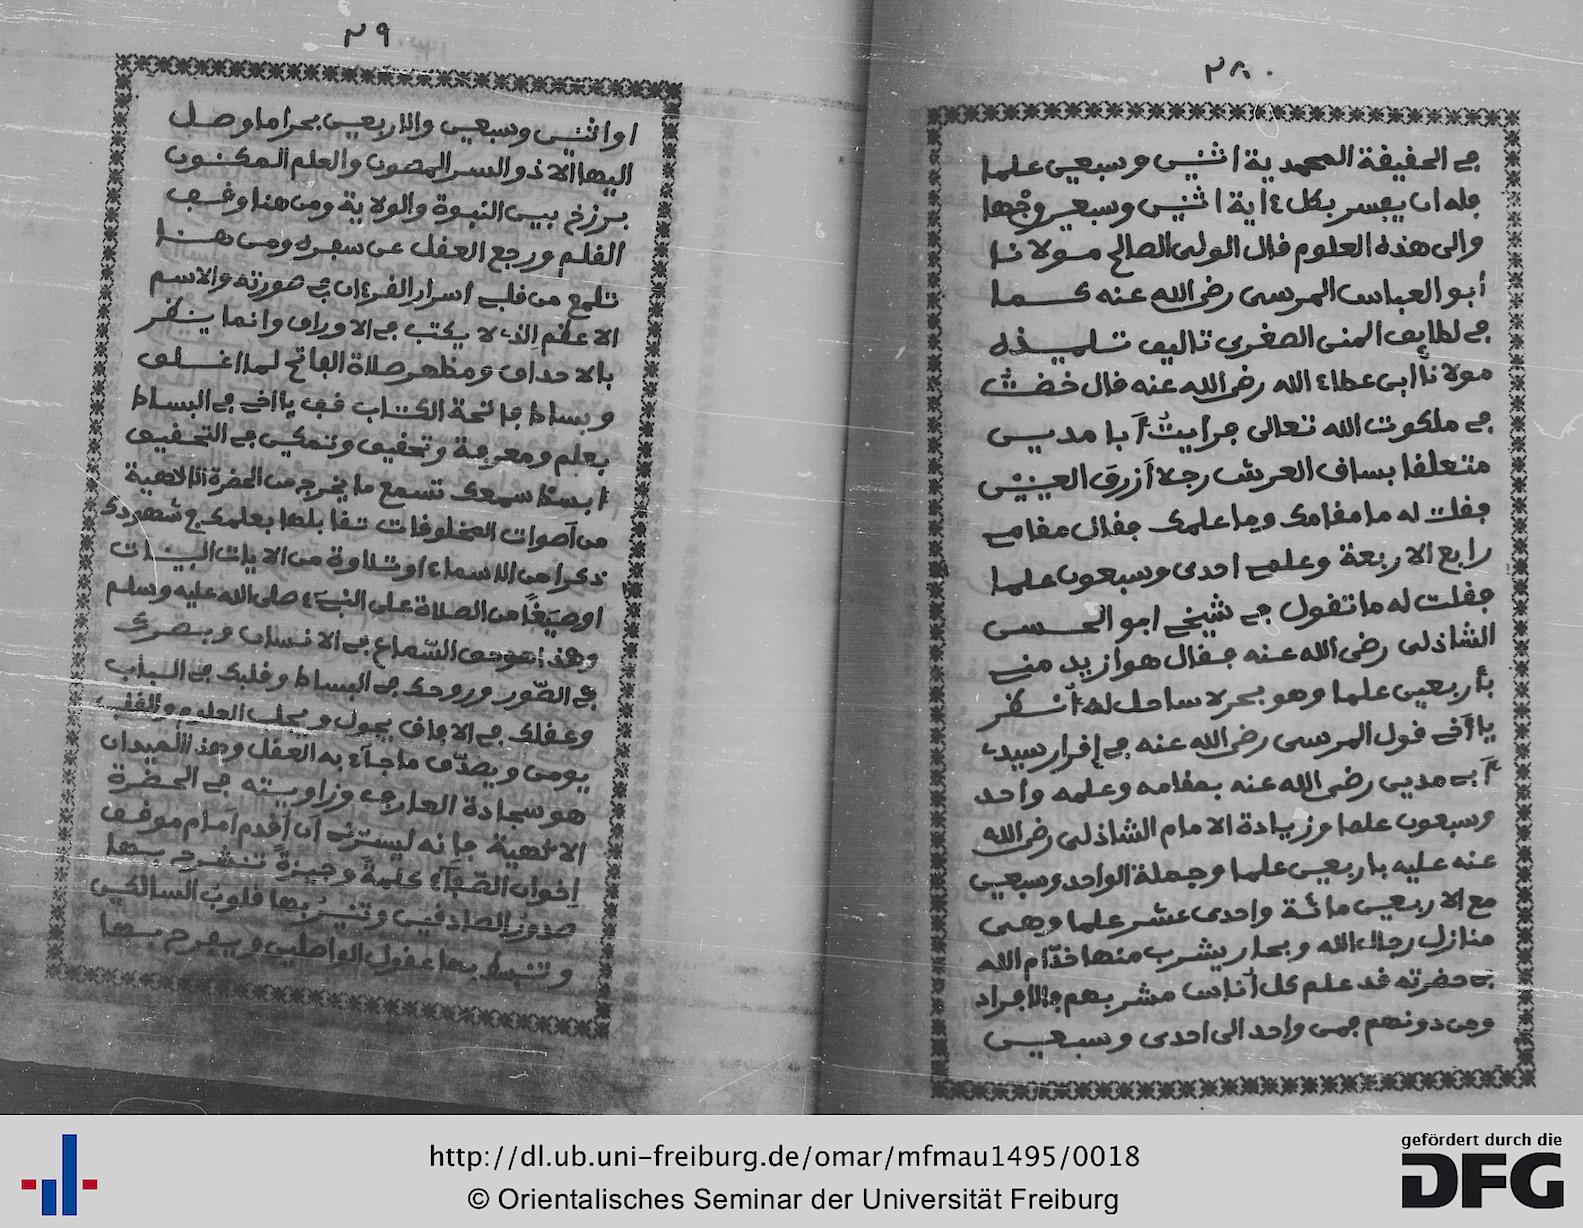 ٢٨٠
في الحقيقة المحمدية اثنين وسبعين علما
فله ان يفسر بكل ءاية اثنين وسبعين وجها
والى هذه العلوم قال الولي الصالح مولانا
أبو العباس المرسى رضي الله عنه كما
في لطايف المنى الصغرى تاليف تلميذه
مولانا ابن عطاء الله رضي الله عنه قال خضت
في ملكوت الله تعالى فرأيت أبا مدين
متعلقا بساق العرش رجلا أزرق العينين
فقلت له ما مقامك وما علمك فقال مقامي
رابع الاربعة وعلمي احدى وسبعون علما
فقلت له ما تقول في شيخي ابو الحسن
الشاذلى رضي الله عنه فقال هو ازيد مني
بأربعين علما وهو بحر لا ساحل له انظر
يا أخي قول المرسى رضي الله عنه في إقرار سيدي
أبي مدين رضي الله عنه بمقامه وعلمه واحد
وسبعون علما وزيادة الامام الشاذلى رضي الله
عنه عليه باربعين علما وجملة الواحد وسبعين
مع الاربعين مائة واحدى عشر علما وهي
منازل رجال الله وبحار يشرب منها خدّام الله
في حضرته قد علم كل أناس مشربهم فالافراد
ومن دونهم فمن واحد الى احدى وسبعين
٢٩
او اثنين وسبعين والاربعين بحرا ما وصل
اليها الا ذو السر المصون والعلم المكنون
برزخ بين النبوة والولاية ومن هنا وقف
القلم ورجع العقل عن سفره ومن هنا
تلمع من قلب اسرار القرءان في صورته والاسم
الاعظم الذي لا يكتب في الاوراق وانما ينظر
بالاحداق ومظهر صلاة الفاتح لما اغلق
وبساط فاتحة الكتاب قف يا اخي في البساط
بعلم ومعرفة وتحقيق وتمكين في التحقيق
ابسط سمعك تسمع ما يخرج من الحضرة الالاهية
من أصوات المخلوقات تقابلها بعلمك في شهودك
ذكرا من الاسماء او تلاوة من الايات البينات
او صيغا من الصلاة على النبيء صلى الله عليه وسلم
وهذا هو حق السماع في الانسان وبصرك
في الصّور وروحك في البساط وقلبك في الباب
وعقلك في الافاق يجول ويجلب العلوم والقلب
يومن ويصدّق ما جاء به العقل وهذا الميدان
هو سجادة العارف وزاويته في الحضرة
الالهية فانه ليسرني أن أقدم أمام موقف
إخوان الصّفآء كلمةً وجيزةً تنشرح بها
صدور الصادقين وتنير بها قلوب السالكين
وتنبسط بها عقول الواصلين ويفرح بها
http://dl.ub.uni-freiburg.de/omar/mfmau1495/0018
© Orientalisches Seminar der Universität Freiburg
gefördert durch die
DFG